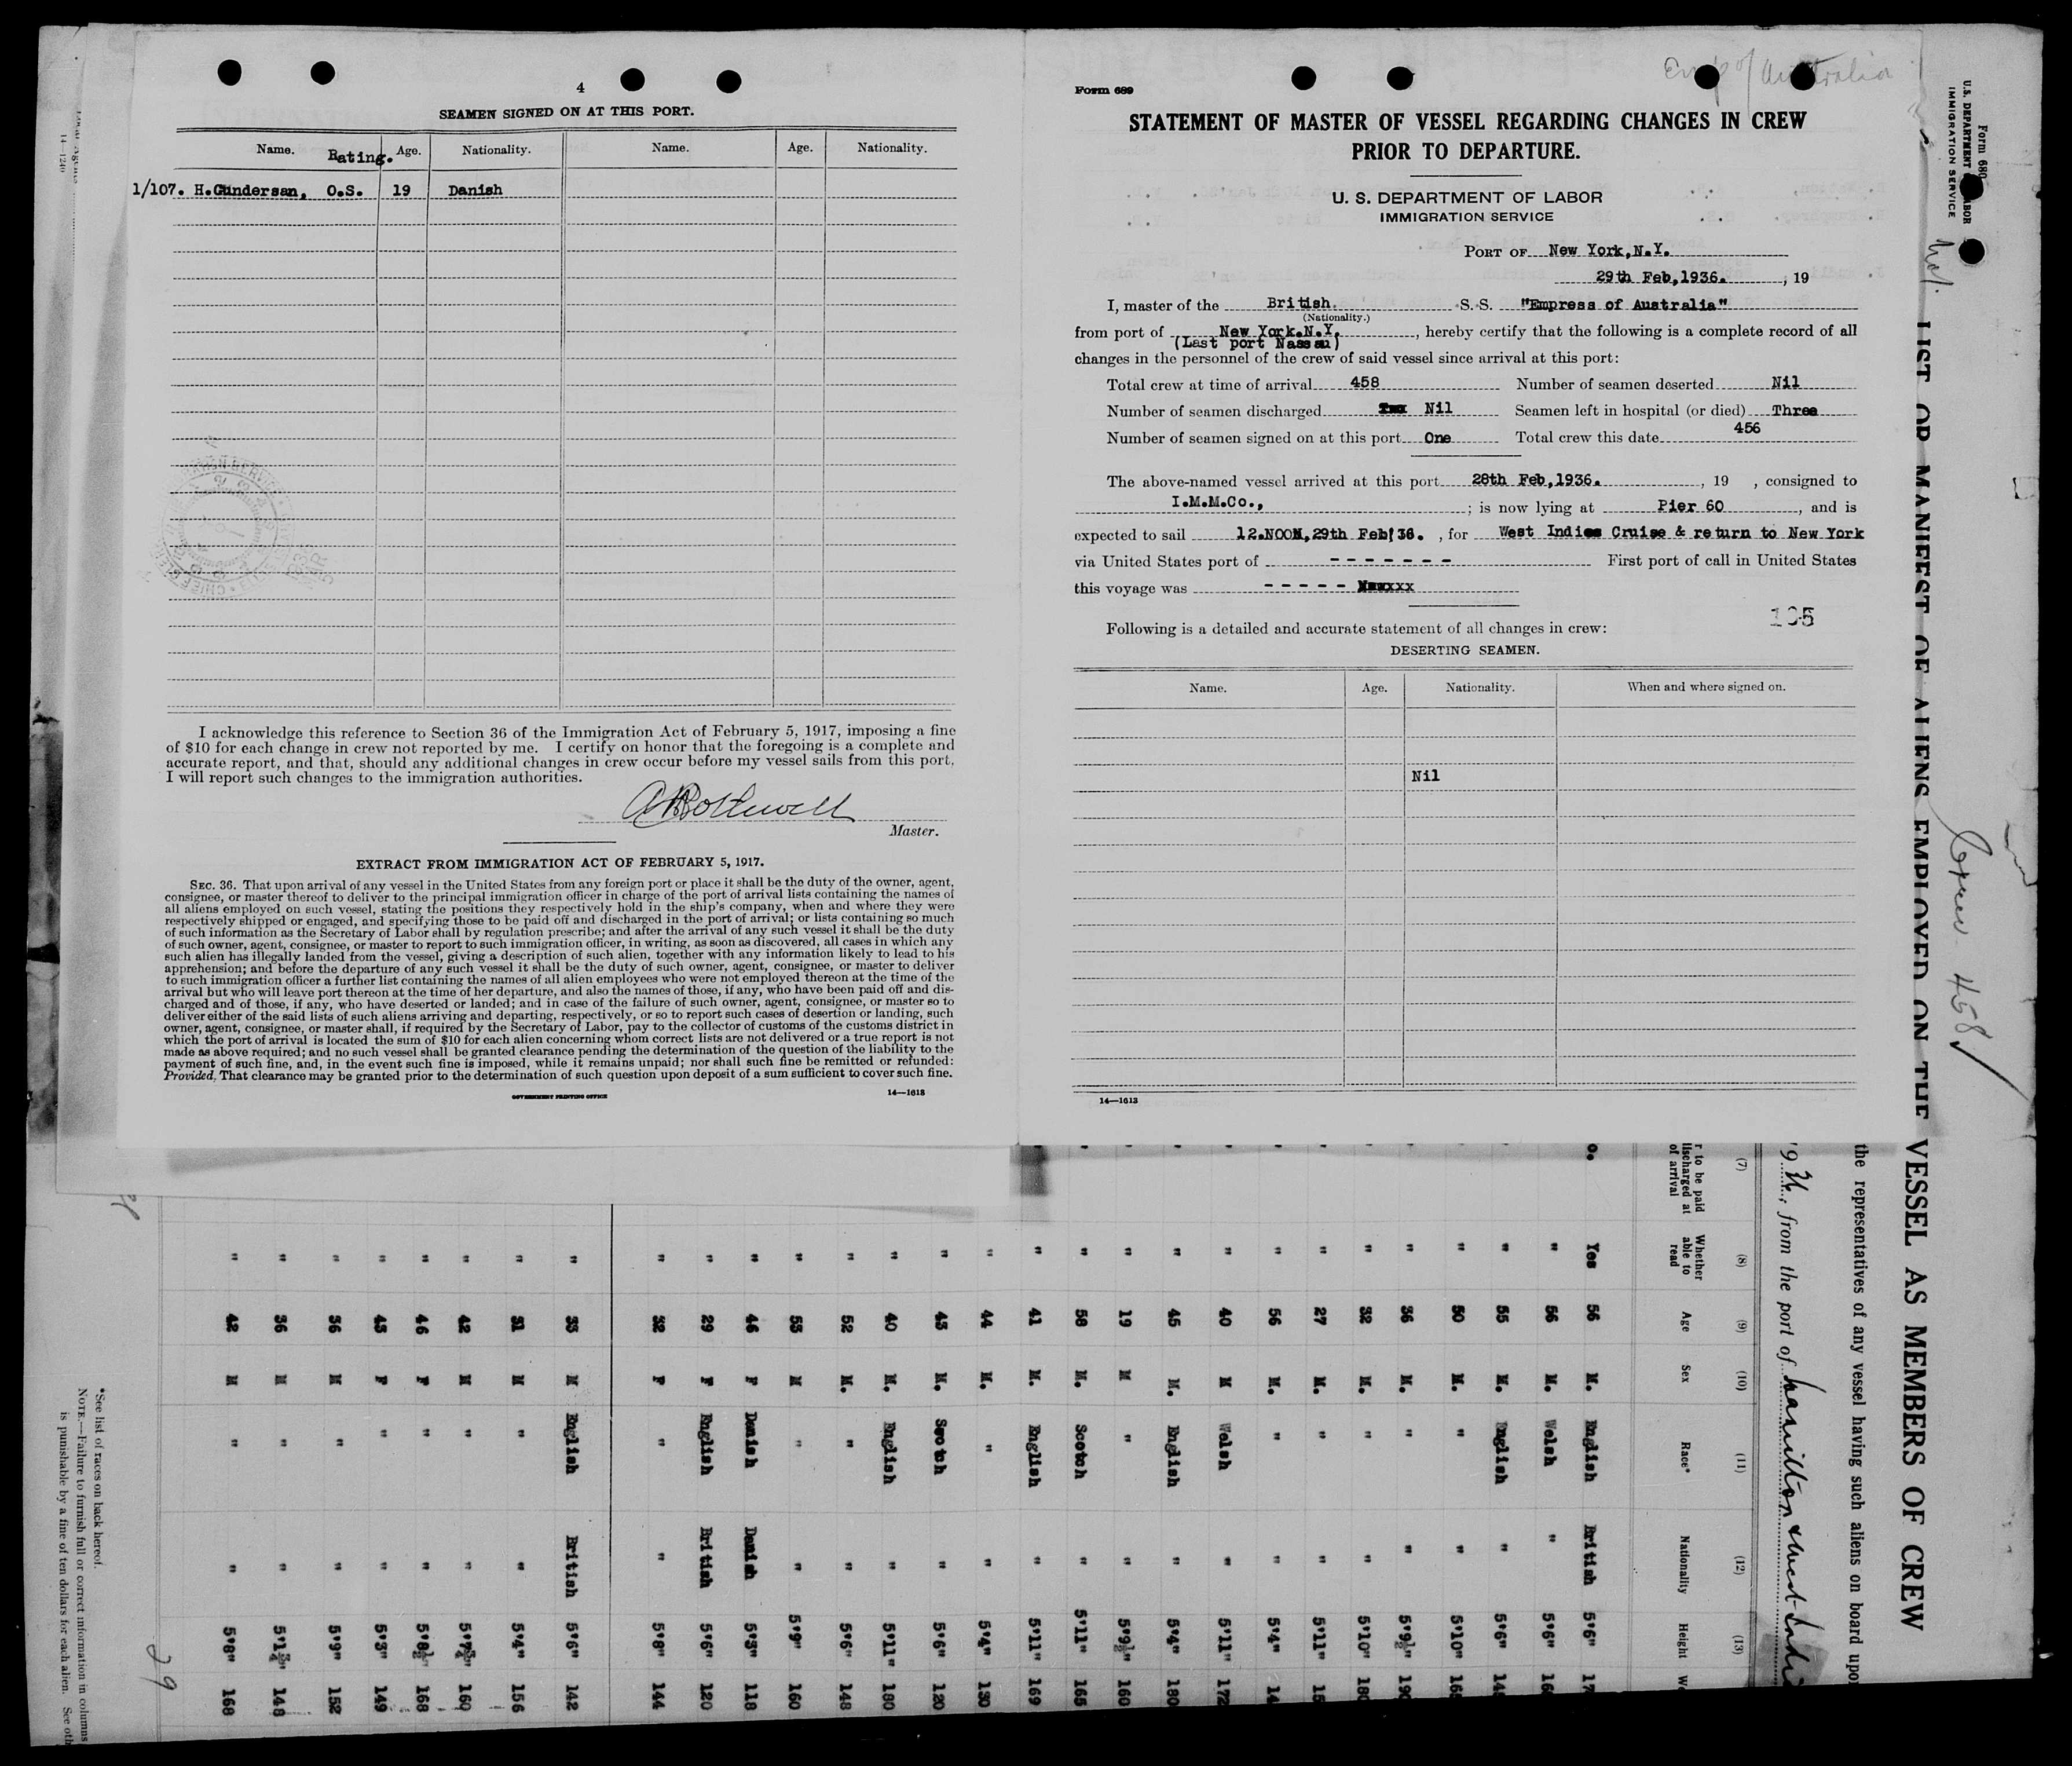 4
SEAMEN SIGNED ON AT THIS PORT.
Name. Rating. Age. Nationality. Name. Age. Nationality.
1/107. H.Gundersen, O.S. 19 Danish
I acknowledge this reference to Section 36 of the Immigration Act of February 5, 1917, imposing a fine
of $10 for each change in crew not reported by me. I certify on honor that the foregoing is a complete and
accurate report, and that, should any additional changes in crew occur before my vessel sails from this port,
I will report such changes to the immigration authorities.
Master.
EXTRACT FROM IMMIGRATION ACT OF FEBRUARY 5, 1917.
SEC. 36. That upon arrival of any vessel in the United States from any foreign port or place it shall be the duty of the owner, agent,
consignee, or master thereof to deliver to the principal immigration officer in charge of the port of arrival lists containing the names of
all aliens employed on such vessel, stating the positions they respectively hold in the ship's company, when and where they were
respectively shipped or engaged, and specifying those to be paid off and discharged in the port of arrival; or lists containing so much
of such information as the Secretary of Labor shall by regulation prescribe; and after the arrival of any such vessel it shall be the duty
of such owner, agent, consignee, or master to report to such immigration officer, in writing, as soon as discovered, all cases in which any
such alien has illegally landed from the vessel, giving a description of such alien, together with any information likely to lead to his
apprehension; and before the departure of any such vessel it shall be the duty of such owner, agent, consignee, or master to deliver
to such immigration officer a further list containing the names of all alien employees who were not employed thereon at the time of the
arrival but who will leave port thereon at the time of her departure, and also the names of those, if any, who have been paid off and dis-
charged and of those, if any, who have deserted or landed; and in case of the failure of such owner, agent, consignee, or master so to
deliver either of the said lists of such aliens arriving and departing, respectively, or so to report such cases of desertion or landing, such
owner, agent, consignee, or master shall, if required by the Secretary of Labor, pay to the collector of customs of the customs district in
which the port of arrival is located the sum of $10 for each alien concerning whom correct lists are not delivered or a true report is not
made as above required; and no such vessel shall be granted clearance pending the determination of the question of the liability to the
payment of such fine, and, in the event such fine is imposed, while it remains unpaid; nor shall such fine be remitted or refunded:
Provided, That clearance may be granted prior to the determination of such question upon deposit of a sum sufficient to cover such fine.
GOVERNMENT PRINTING OFFICE 14—1613
Emp of Australia
Form 689
STATEMENT OF MASTER OF VESSEL REGARDING CHANGES IN CREW
PRIOR TO DEPARTURE.
U. S. DEPARTMENT OF LABOR
IMMIGRATION SERVICE
PORT OF New York,N.Y.
29th Feb,1936. , 19
I, master of the British. S.S. "Empress of Australia"
(Nationality.)
from port of New York.N.Y. , hereby certify that the following is a complete record of all
(Last port Nassau)
changes in the personnel of the crew of said vessel since arrival at this port:
Total crew at time of arrival 458 Number of seamen deserted Nil
Number of seamen discharged Nil Seamen left in hospital (or died) Three
Number of seamen signed on at this port One Total crew this date 456
The above-named vessel arrived at this port 28th Feb,1936. , 19 , consigned to
I.M.M.Co., ; is now lying at Pier 60 , and is
expected to sail 12.NOON,29th Feb'36. , for West Indies Cruise & return to New York
via United States port of - - - - - - - First port of call in United States
this voyage was - - - - -
Following is a detailed and accurate statement of all changes in crew:
DESERTING SEAMEN.
Name. Age. Nationality. When and where signed on.
Nil
14—1613
Form 680
U.S. DEPARTMENT LABOR
IMMIGRATION SERVICE
LIST OR MANIFEST OF ALIENS EMPLOYED ON THE VESSEL AS MEMBERS OF CREW
Crew 458
the representatives of any vessel having such aliens on board upo
, from the port of Hamilton & West Indi
(7) (8) (9) (10) (11) (12) (13)
r to be paid
discharged at
of arrival
Whether
able to
read
Age Sex Race* Nationality Height We
o. Yes 56 M. English British 5'6" 17
" 56 M. Welsh " 5'6" 16
" 55 M. English " 5'6" 145
" 50 M. " " 5'10" 165
" 36 M. " " 5'9½" 190
" 32 M. " " 5'10" 180
" 27 M. " " 5'11" 15
" 56 M. " " 5'4" 14
" 40 M Welsh " 5'11" 172
" 45 M. English " 5'4" 180
" 19 M " " 5'9½" 160
" 58 M. Scotch " 5'11" 165
" 41 M. English " 5'11" 169
" 44 M. " " 5'4" 130
" 43 M. Scotch " 5'6" 120
" 40 M. English " 5'11" 180
" 52 M. " " 5'6" 148
" 53 M " " 5'9" 160
" 46 F Danish Danish 5'3" 118
" 29 F English British 5'6" 120
" 32 F " " 5'8" 144
" 33 M English British 5'6" 142
" 31 M " " 5'4" 156
" 42 M " " 5'7¾" 160
" 46 F " " 5'8½" 168
" 43 F " " 5'3" 149
" 36 M " " 5'9" 152
" 36 M " " 5'1¾" 148
" 42 M " " 5'8" 168
29
*See list of races on back hereof.
NOTE.—Failure to furnish full or correct information in columns
is punishable by a fine of ten dollars for each alien. See oth